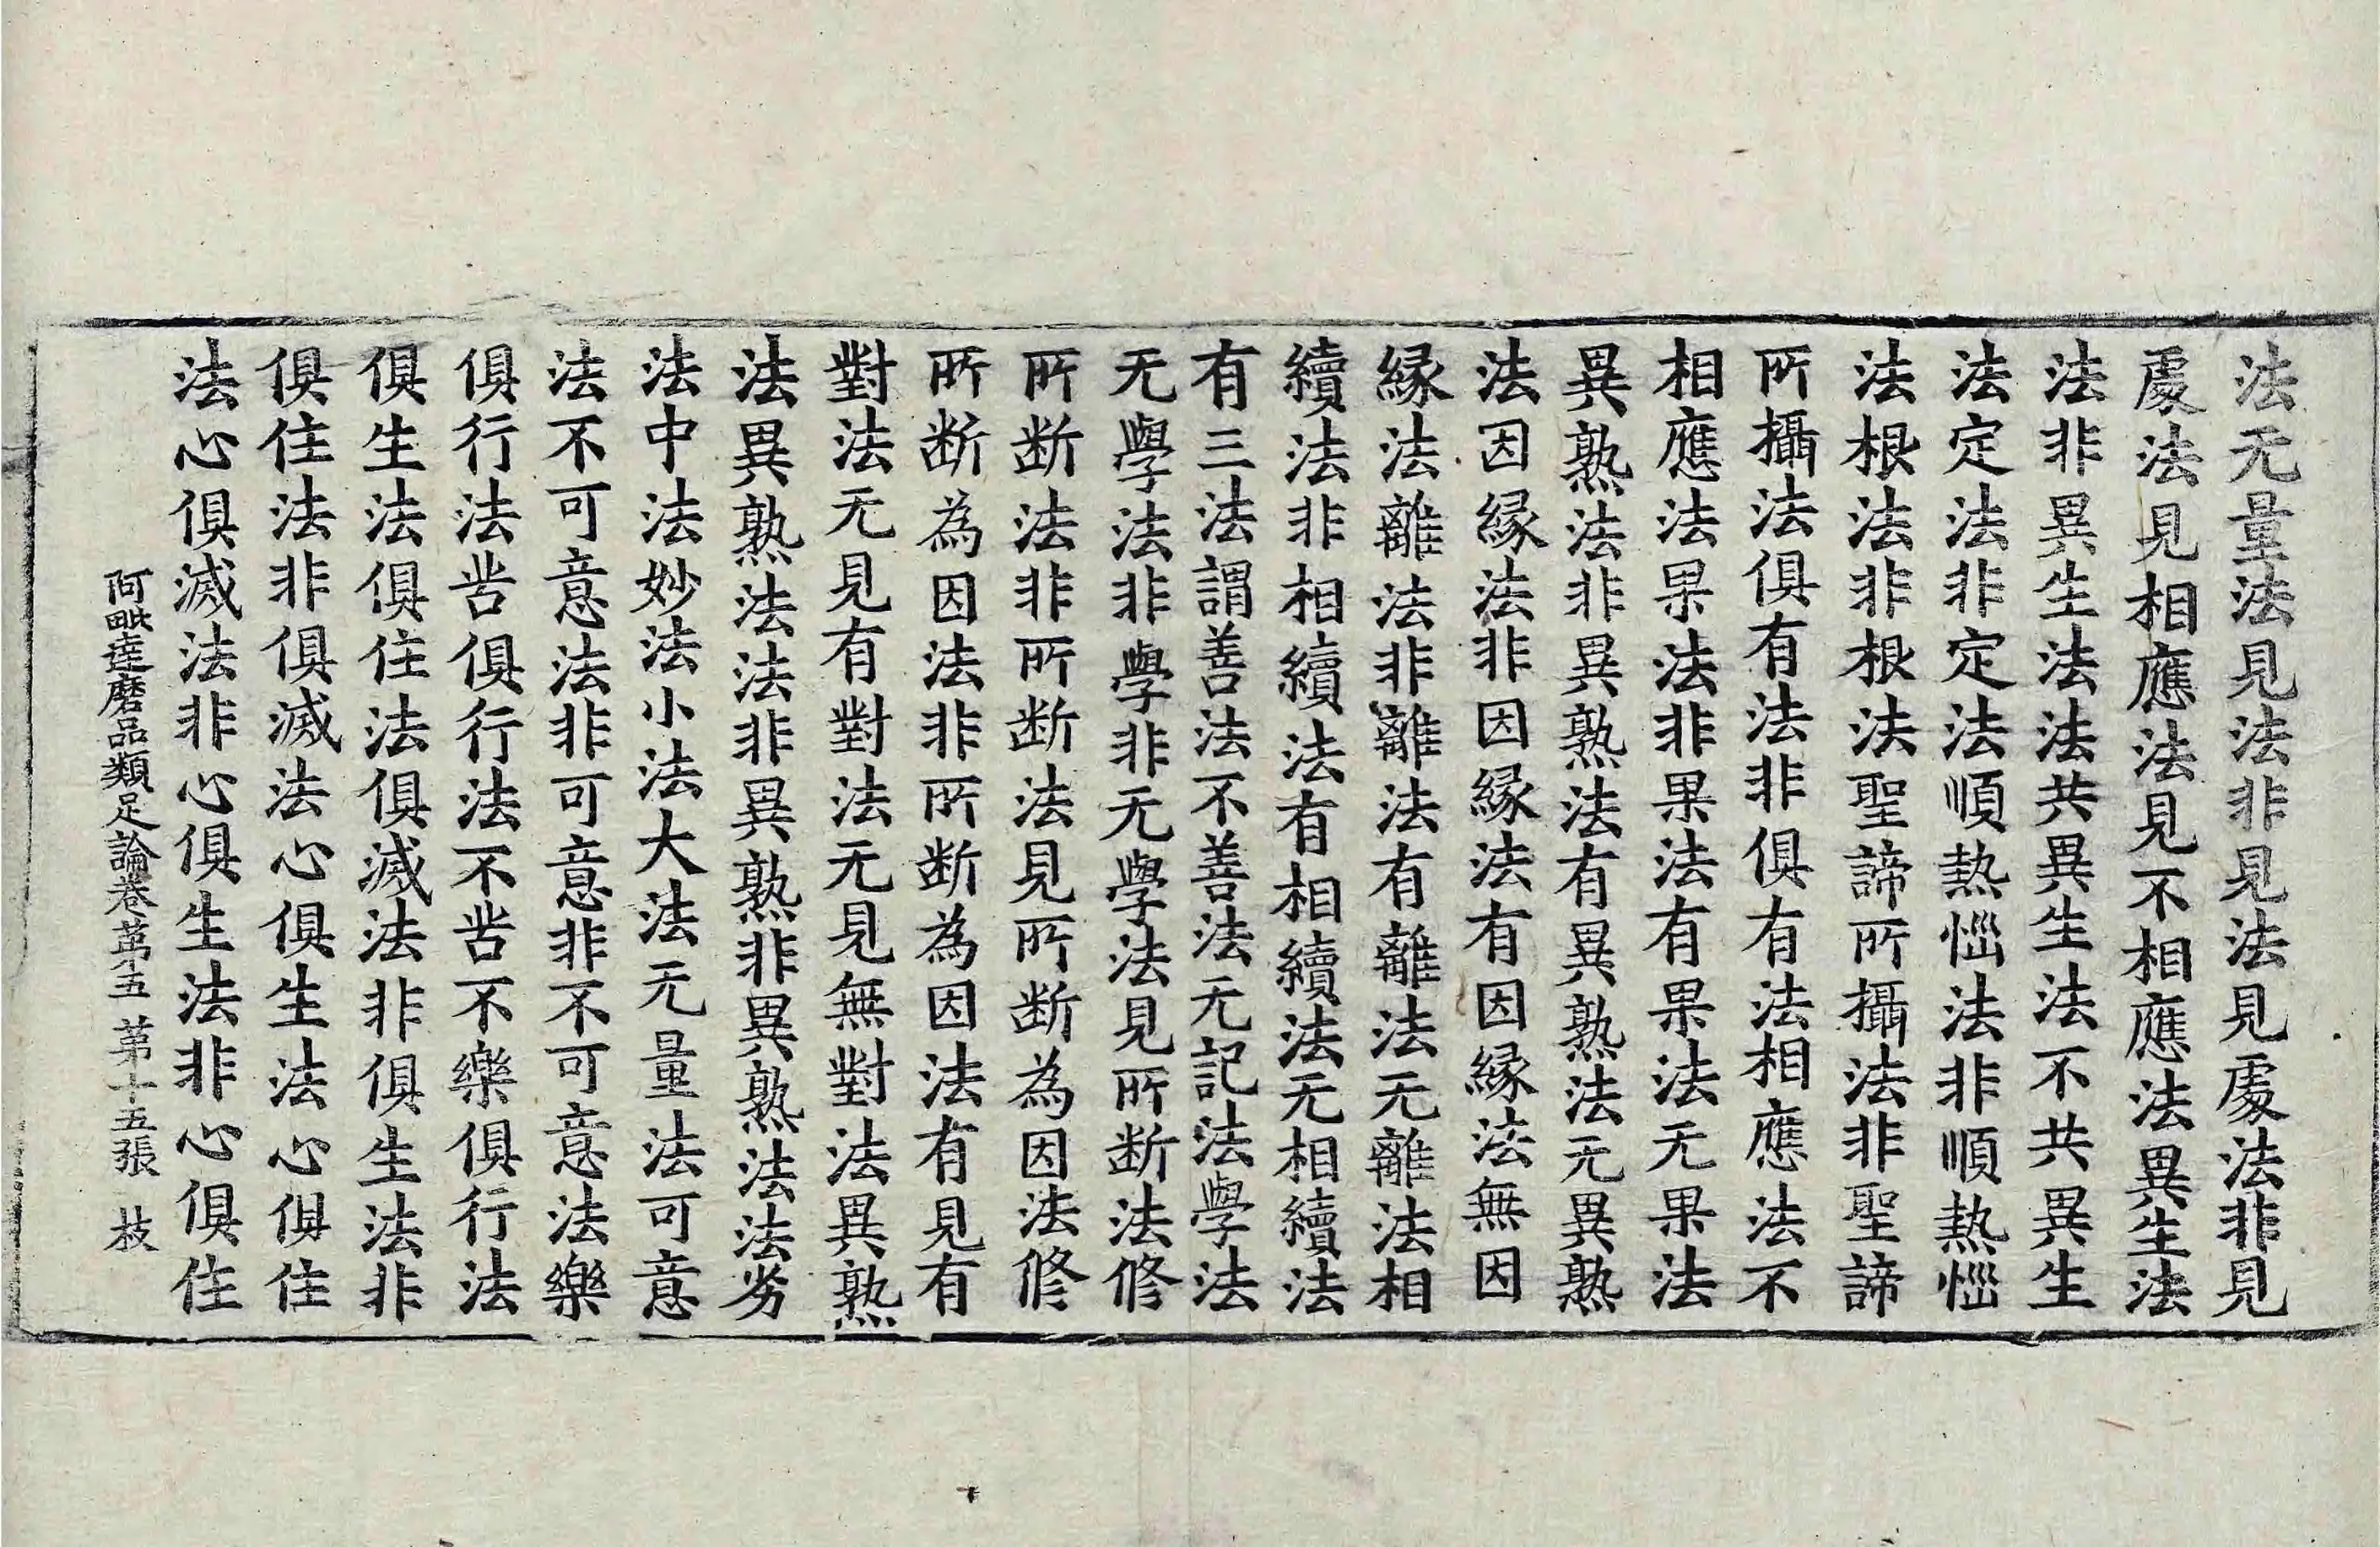 法无量法見法非見法見處法非見
處法見相應法見不相應法異生法
法非異生法法共異生法不共異生
法定法非定法順熱惱法非順熱惱
法根法非根法聖諦所攝法非聖諦
所攝法俱有法非俱有法相應法不
相應法果法非果法有果法无果法
異熟法非異熟法有異熟法无異熟
法因緣法非因緣法有因緣法無因
緣法離法非離法有離法无離法相
續法非相續法有相續法无相續法
有三法謂善法不善法无記法學法
无學法非學非无學法見所斷法修
所斷法非所斷法見所斷為因法修
所斷為因法非所斷為因法有見有
對法无見有對法无見無對法異熟
法異熟法法非異熟非異熟法法劣
法中法妙法小法大法无量法可意
法不可意法非可意非不可意法樂
俱行法苦俱行法不苦不樂俱行法
俱生法俱住法俱滅法非俱生法非
俱住法非俱滅法心俱生法心俱住
法心俱滅法非心俱生法非心俱住
阿毗達磨品類足論卷第五 第十五張 枝